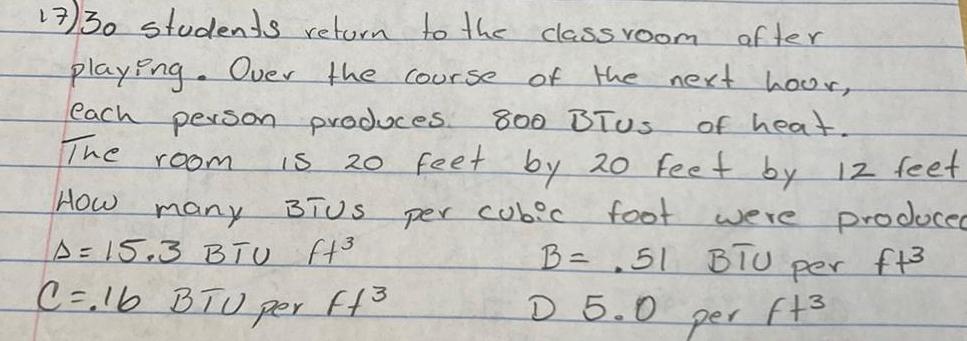 17) 30 students return to the classroom after
playing. Over the course of the next hour,
each person produces 800 BTUs of heat.
The room is 20 feet by 20 feet by 12 feet
How many BTUs per cubic foot were produced
A = 15.3 BTU ft³ B = .51 BTU per ft³
C = .16 BTU per ft³ D 5.0 per ft³